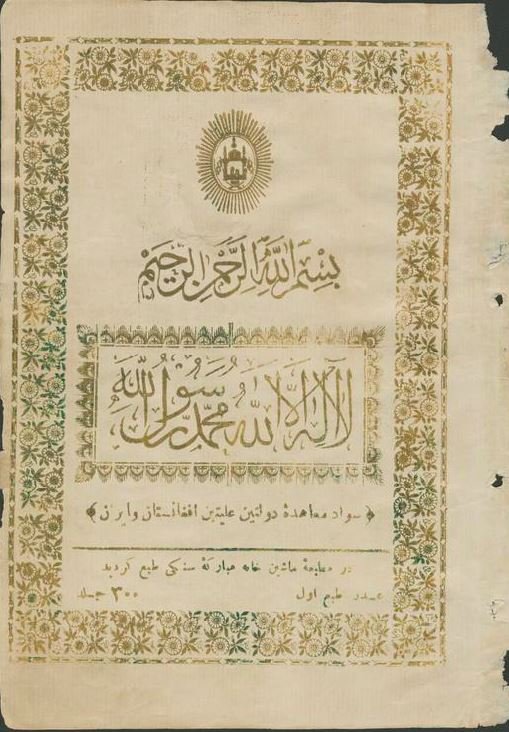 بِسْمِ اللّٰهِ الرَّحْمٰنِ الرَّحِیْمِ
لَا اِلٰهَ اِلَّا اللّٰهُ مُحَمَّدٌ رَّسُوْلُ اللّٰهِ
﴿ سواد معاهدهٔ دولتین علیتین افغانستان وایران ﴾
در مطبعهٔ ماشین خانه مبارکهٔ سنکی طبع کردید
طبع اول
۳۰۰ جلد